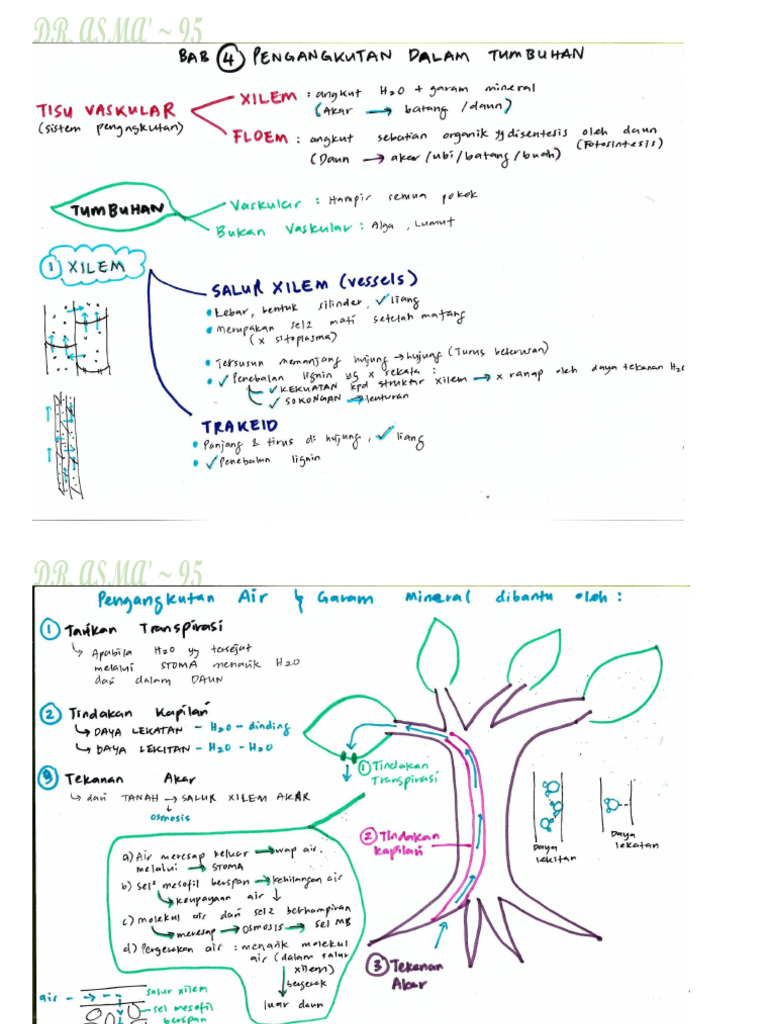 DR. ASMA' ~ 95
BAB 4 PENGANGKUTAN DALAM TUMBUHAN
TISU VASKULAR
(sistem pengangkutan)
XILEM : angkut H2O + garam mineral
(Akar → batang / daun)
FLOEM : angkut sebatian organik yg disentesis oleh daun
(Fotosintesis)
(Daun → akar/ubi/batang/buah)
TUMBUHAN
Vaskular : Hampir semua pokok
Bukan Vaskular : Alga, Lumut
1 XILEM
SALUR XILEM (vessels)
• Lebar, bentuk silinder, ✓ liang
• Merupakan sel2 mati setelah matang
(x sitoplasma)
• Tersusun memanjang hujung → hujung (Turus beterusan)
• ✓ Penebalan lignin yg x sekata :
✓ KEKUATAN kpd struktur xilem → x ranap oleh daya tekanan H2O
✓ SOKONGAN → lenturan
TRAKEID
• Panjang & tirus di hujung, ✓ liang
• ✓ Penebalan lignin
DR. ASMA' ~ 95
Pengangkutan Air & Garam Mineral dibantu oleh :
1 Tarikan Transpirasi
↳ Apabila H2O yg tersejat
melalui STOMA menarik H2O
dari dalam DAUN
2 Tindakan Kapilari
↳ DAYA LEKATAN - H2O - dinding
↳ DAYA LEKITAN - H2O - H2O
3 Tekanan Akar
↳ dari TANAH → SALUR XILEM AKAR
osmosis
a) Air meresap keluar → wap air
melalui → STOMA
b) sel² mesofil berspan → kehilangan air
↳ keupayaan air ↓
c) molekul air dari sel2 berhampiran
↳ meresap → osmosis → sel MB
d) Pergerakan air : menarik molekul
air (dalam salur
xilem)
bergerak
luar daun
1 Tindakan
Transpirasi
2 Tindakan
Kapilari
3 Tekanan
Akar
Daya
lekitan
Daya
lekatan
air
salur xilem
sel mesofil
berspan